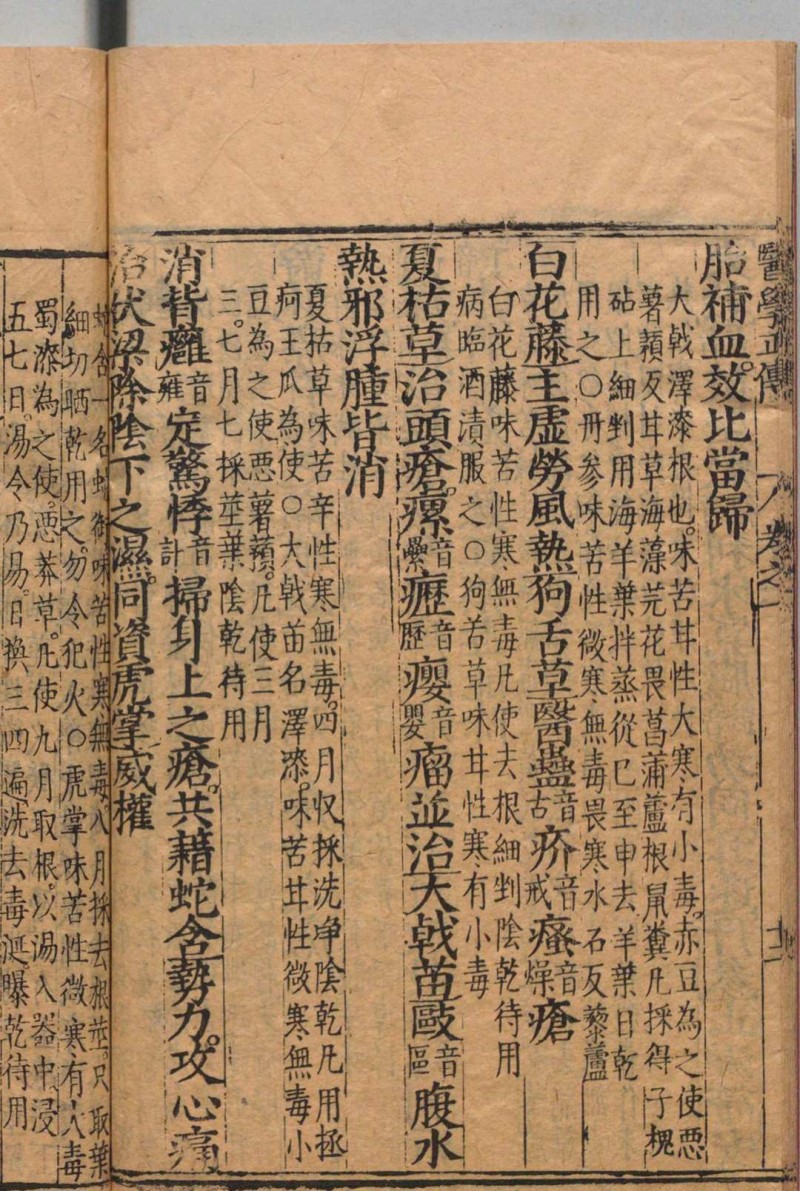 醫學正傳 八卷之一
胎補血效比當歸
大戟澤漆根也味苦甘性大寒有小毒赤豆為之使惡
薯蕷反甘草海藻芫花畏菖蒲蘆根鼠糞凡採得子槐
砧上細剉用海羊葉拌蒸從巳至申去羊葉日乾
用之○丹参味苦性微寒無毒畏寒水石反藜蘆
白花藤主虛勞風熱狗舌草醫蠱音古疥音戒瘙音燥瘡
白花藤味苦性寒無毒凡使去根細剉陰乾待用
病臨酒漬服之○狗舌草味甘性寒有小毒
夏枯草治頭瘡瘰音纍癧音歷癭音嬰瘤並治大戟苗毆音區腹水
熱邪浮腫皆消
夏枯草味苦辛性寒無毒四月收採洗净陰乾凡用拯
疴王瓜為使○大戟苗名澤漆味苦甘性微寒無毒小
豆為之使惡薯蕷凡使三月
三七月七採莖葉陰乾待用
消背癰音雍定驚悸音計掃身上之瘡共藉蛇含勢力攻心痛
治伏梁除陰下之濕同資虎掌威權
蛇含一名蛇銜味苦性寒無毒八月採去根莖只取葉
細切晒乾用之勿令犯火○虎掌味苦性微寒有大毒
蜀漆為之使惡莽草凡使九月取根以湯入器中浸
五七日湯令乃易日換三四遍洗去毒涎曝乾待用